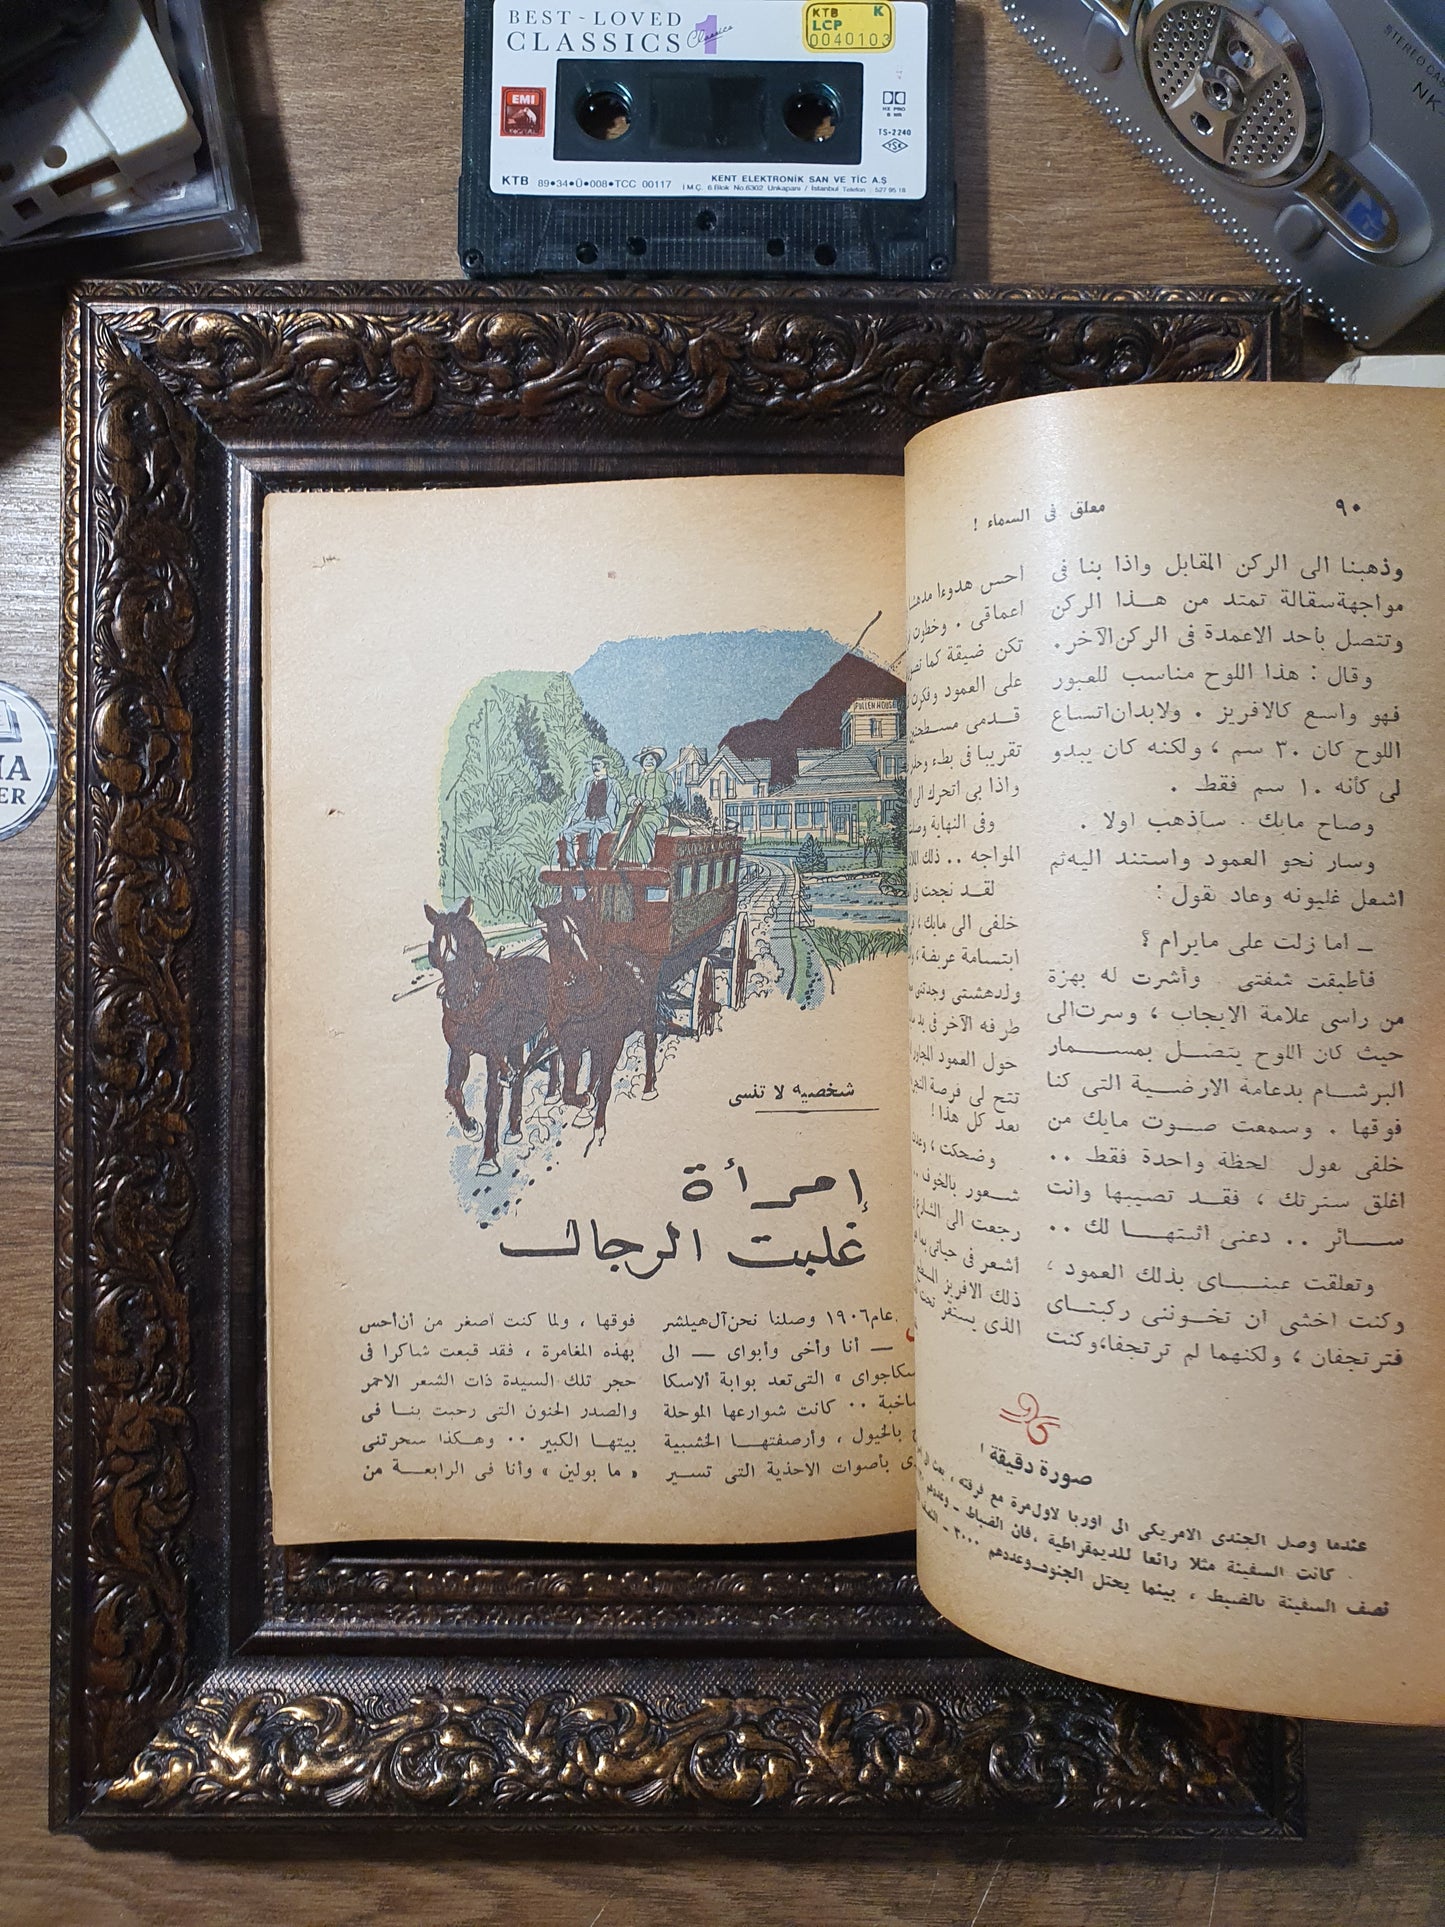 BEST~LOVED
CLASSICS 1
Classics
KTB K
LCP
0040103
EMI
DIGITAL
HX PRO
B NR
TS-2240
TSE
KTB 89•34•Ü•008•TCC 00117
KENT ELEKTRONİK SAN VE TİC A.Ş
İ.M.Ç. 6.Blok No.6302 Unkapanı / İstanbul Telefon : 527 95 18
STEREO
NK
IA
ER
٩٠
معلق فى السماء !
وذهبنا الى الركن المقابل واذا بنا فى
مواجهة سقالة تمتد من هــذا الركن
وتتصل بأحد الاعمدة فى الركن الآخر.
وقال : هذا اللوح مناسب للعبور
فهو واسع كالافريز . ولابد ان اتساع
اللوح كان ٣٠ سم ، ولكنه كان يبدو
لى كأنه ١٠ سم فقط .
وصاح مايك . سأذهب اولا .
وسار نحو العمود واستند اليه ثم
اشعل غليونه وعاد يقول :
ــ أما زلت على مايرام ؟
فأطبقت شفتى وأشرت له بهزة
من رأسى علامة الايجاب ، وسرت الى
حيث كان اللوح يتصــل بمســمار
البرشــام بدعامة الارضــية التى كنا
فوقها . وسمعت صــوت مايك من
خلفى يقول لحظة واحدة فقط ..
اغلق سترتك ، فقــد تصيبها وانت
ســائر .. دعنى اثبتهــا لك ..
وتعلقت عينــاى بذلك العمود ،
وكنت اخشى ان تخــوننى ركبتــاى
فترتجفان ، ولكنهما لم ترتجفا، وكنت
احس هدوءا
اعماقى . وخطوت
تكن ضيقة كما
على العمود وفكرت
قــدمى
تقريبا فى بطء
واذا بى اتحرك
وفى النهاية
المواجه .. ذلك
لقــد نجحت
خلفى الى مايك ،
ابتسامة عريضة ،
ولدهشتى وجدتنى
طرفه الآخر فى
حول العمود
تتح لى فرصة
بعد كل هذا !
وضحكت ،
شــعور بالخوف ..
رجعت الى
أشعر فى حياتى
ذلك الافريز
الذى يستقر تحت
صورة دقيقة !
عندما وصل الجندى الامريكى الى اوربا لاول مرة مع فرقته ،
كانت السفينة مثلا رائعا للديمقراطية ، فان الضباط ــ وعددهم
نصف السفينة بالضبط ، بينما يحتل الجنود ــ وعددهم ٣٠٠٠ ــ
PULLEN HOUSE
شخصيه لا تنسى
إمرأة
غلبت الرجال
عام ١٩٠٦ وصلنا نحن آل هيلشر
ــ أنا وأخى وأبواى ــ الى
« التى تعد بوابة ألاسكا
.. كانت شوارعها الموحلة
بالخيول ، وأرصفتهــا الخشبية
بأصوات الاحذية التى تســير
فوقها ، ولما كنت أصغر من أن أحس
بهذه المغامرة ، فقد قبعت شاكرا فى
حجر تلك السيدة ذات الشعر الاحمر
والصدر الحنون التى رحبت بنــا فى
بيتهــا الكبير .. وهــكذا سحرتنى
« ما بولين » وأنا فى الرابعــة من